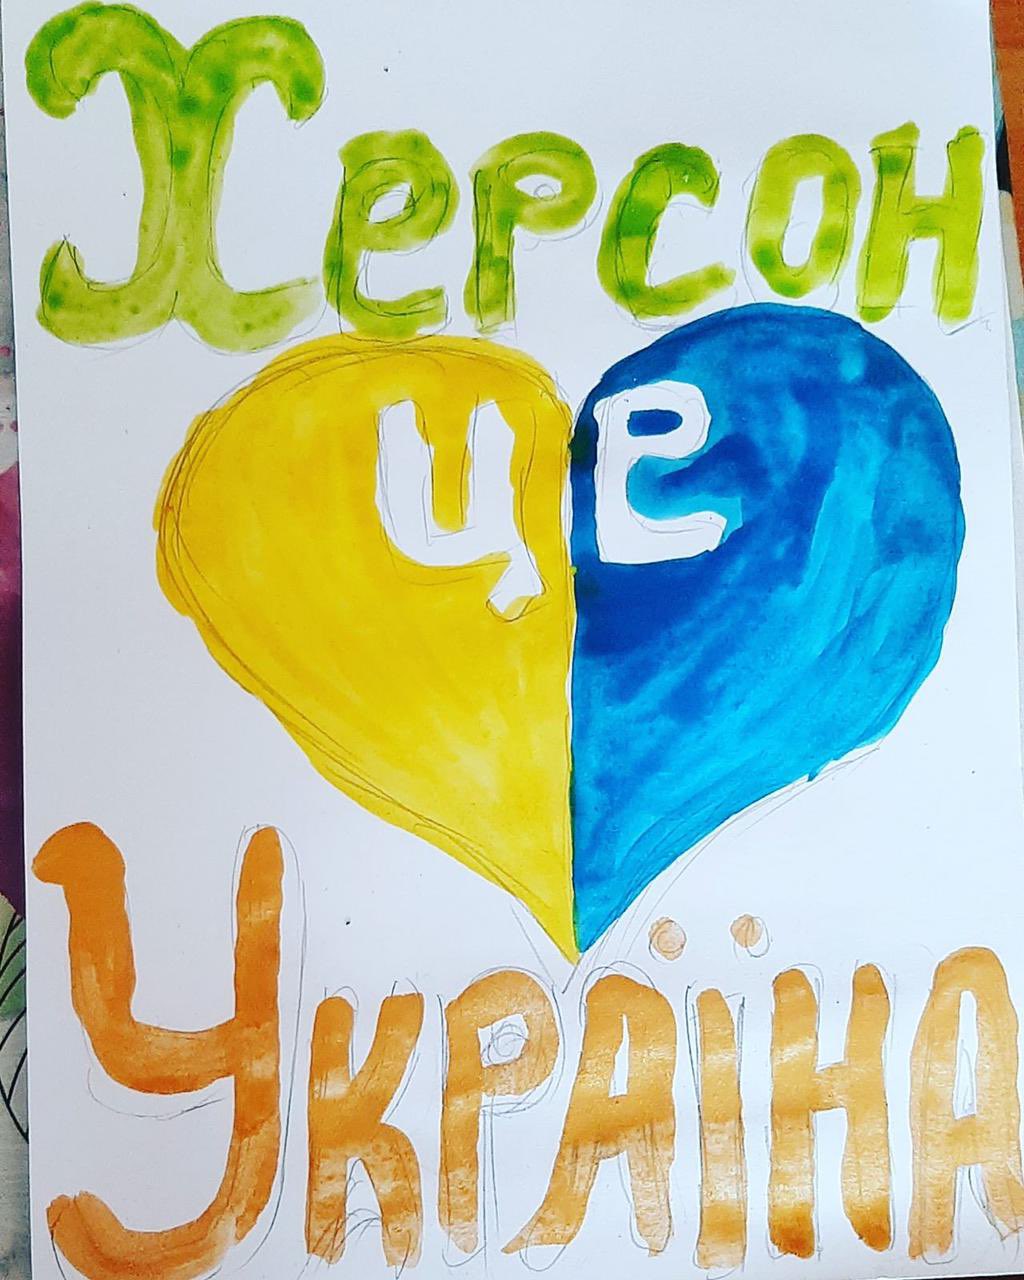 Херсон
це
Україна